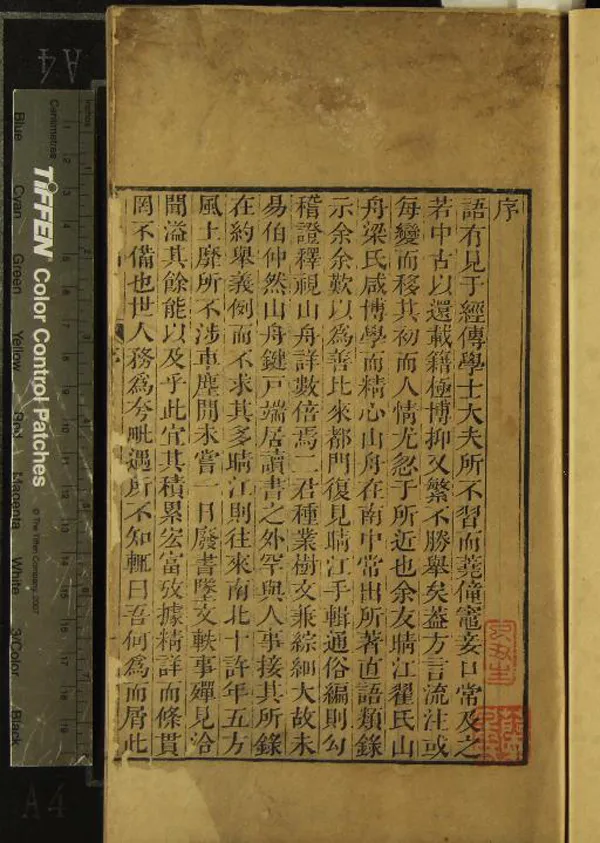 序
語有見于經傳學士大夫所不習而蕘僮竈妾口常及之
若中古以還載籍極博抑又繁不勝舉矣葢方言流注或
每變而移其初而人情尤忽于所近也余友晴江翟氏山
舟梁氏咸博學而精心山舟在南中常出所著直語類錄
示余余歎以為善比來都門復見晴江手輯通俗編則勾
稽證釋視山舟詳數倍焉二君種業樹文兼綜細大故未
易伯仲然山舟鍵戸端居讀書之外罕與人事接其所錄
在約舉義例而不求其多晴江則往來南北十許年五方
風土靡所不涉車塵間未嘗一日廢書墜文軼事殫見洽
聞溢其餘能以及乎此宜其積累宏富攷據精詳而條貫
罔不備也世人務為夸毗遇所不知輒曰吾何為而屑此
序
A4
Centimetres
Inches
TIFFEN Color Control Patches
© The Tiffen Company, 2007
Blue
Cyan
Green
Yellow
Red
Magenta
White
3/Color
Black
A4